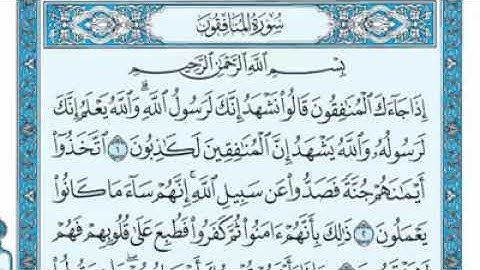 سُورَةُ المُنَافِقُونَ
بِسْمِ اللَّهِ الرَّحْمَٰنِ الرَّحِيمِ
إِذَا جَاءَكَ الْمُنَافِقُونَ قَالُوا نَشْهَدُ إِنَّكَ لَرَسُولُ اللَّهِ ۗ وَاللَّهُ يَعْلَمُ إِنَّكَ
لَرَسُولُهُ وَاللَّهُ يَشْهَدُ إِنَّ الْمُنَافِقِينَ لَكَاذِبُونَ ١ اتَّخَذُوا
أَيْمَانَهُمْ جُنَّةً فَصَدُّوا عَن سَبِيلِ اللَّهِ ۚ إِنَّهُمْ سَاءَ مَا كَانُوا
يَعْمَلُونَ ٢ ذَٰلِكَ بِأَنَّهُمْ ءَامَنُوا ثُمَّ كَفَرُوا فَطُبِعَ عَلَىٰ قُلُوبِهِمْ فَهُمْ